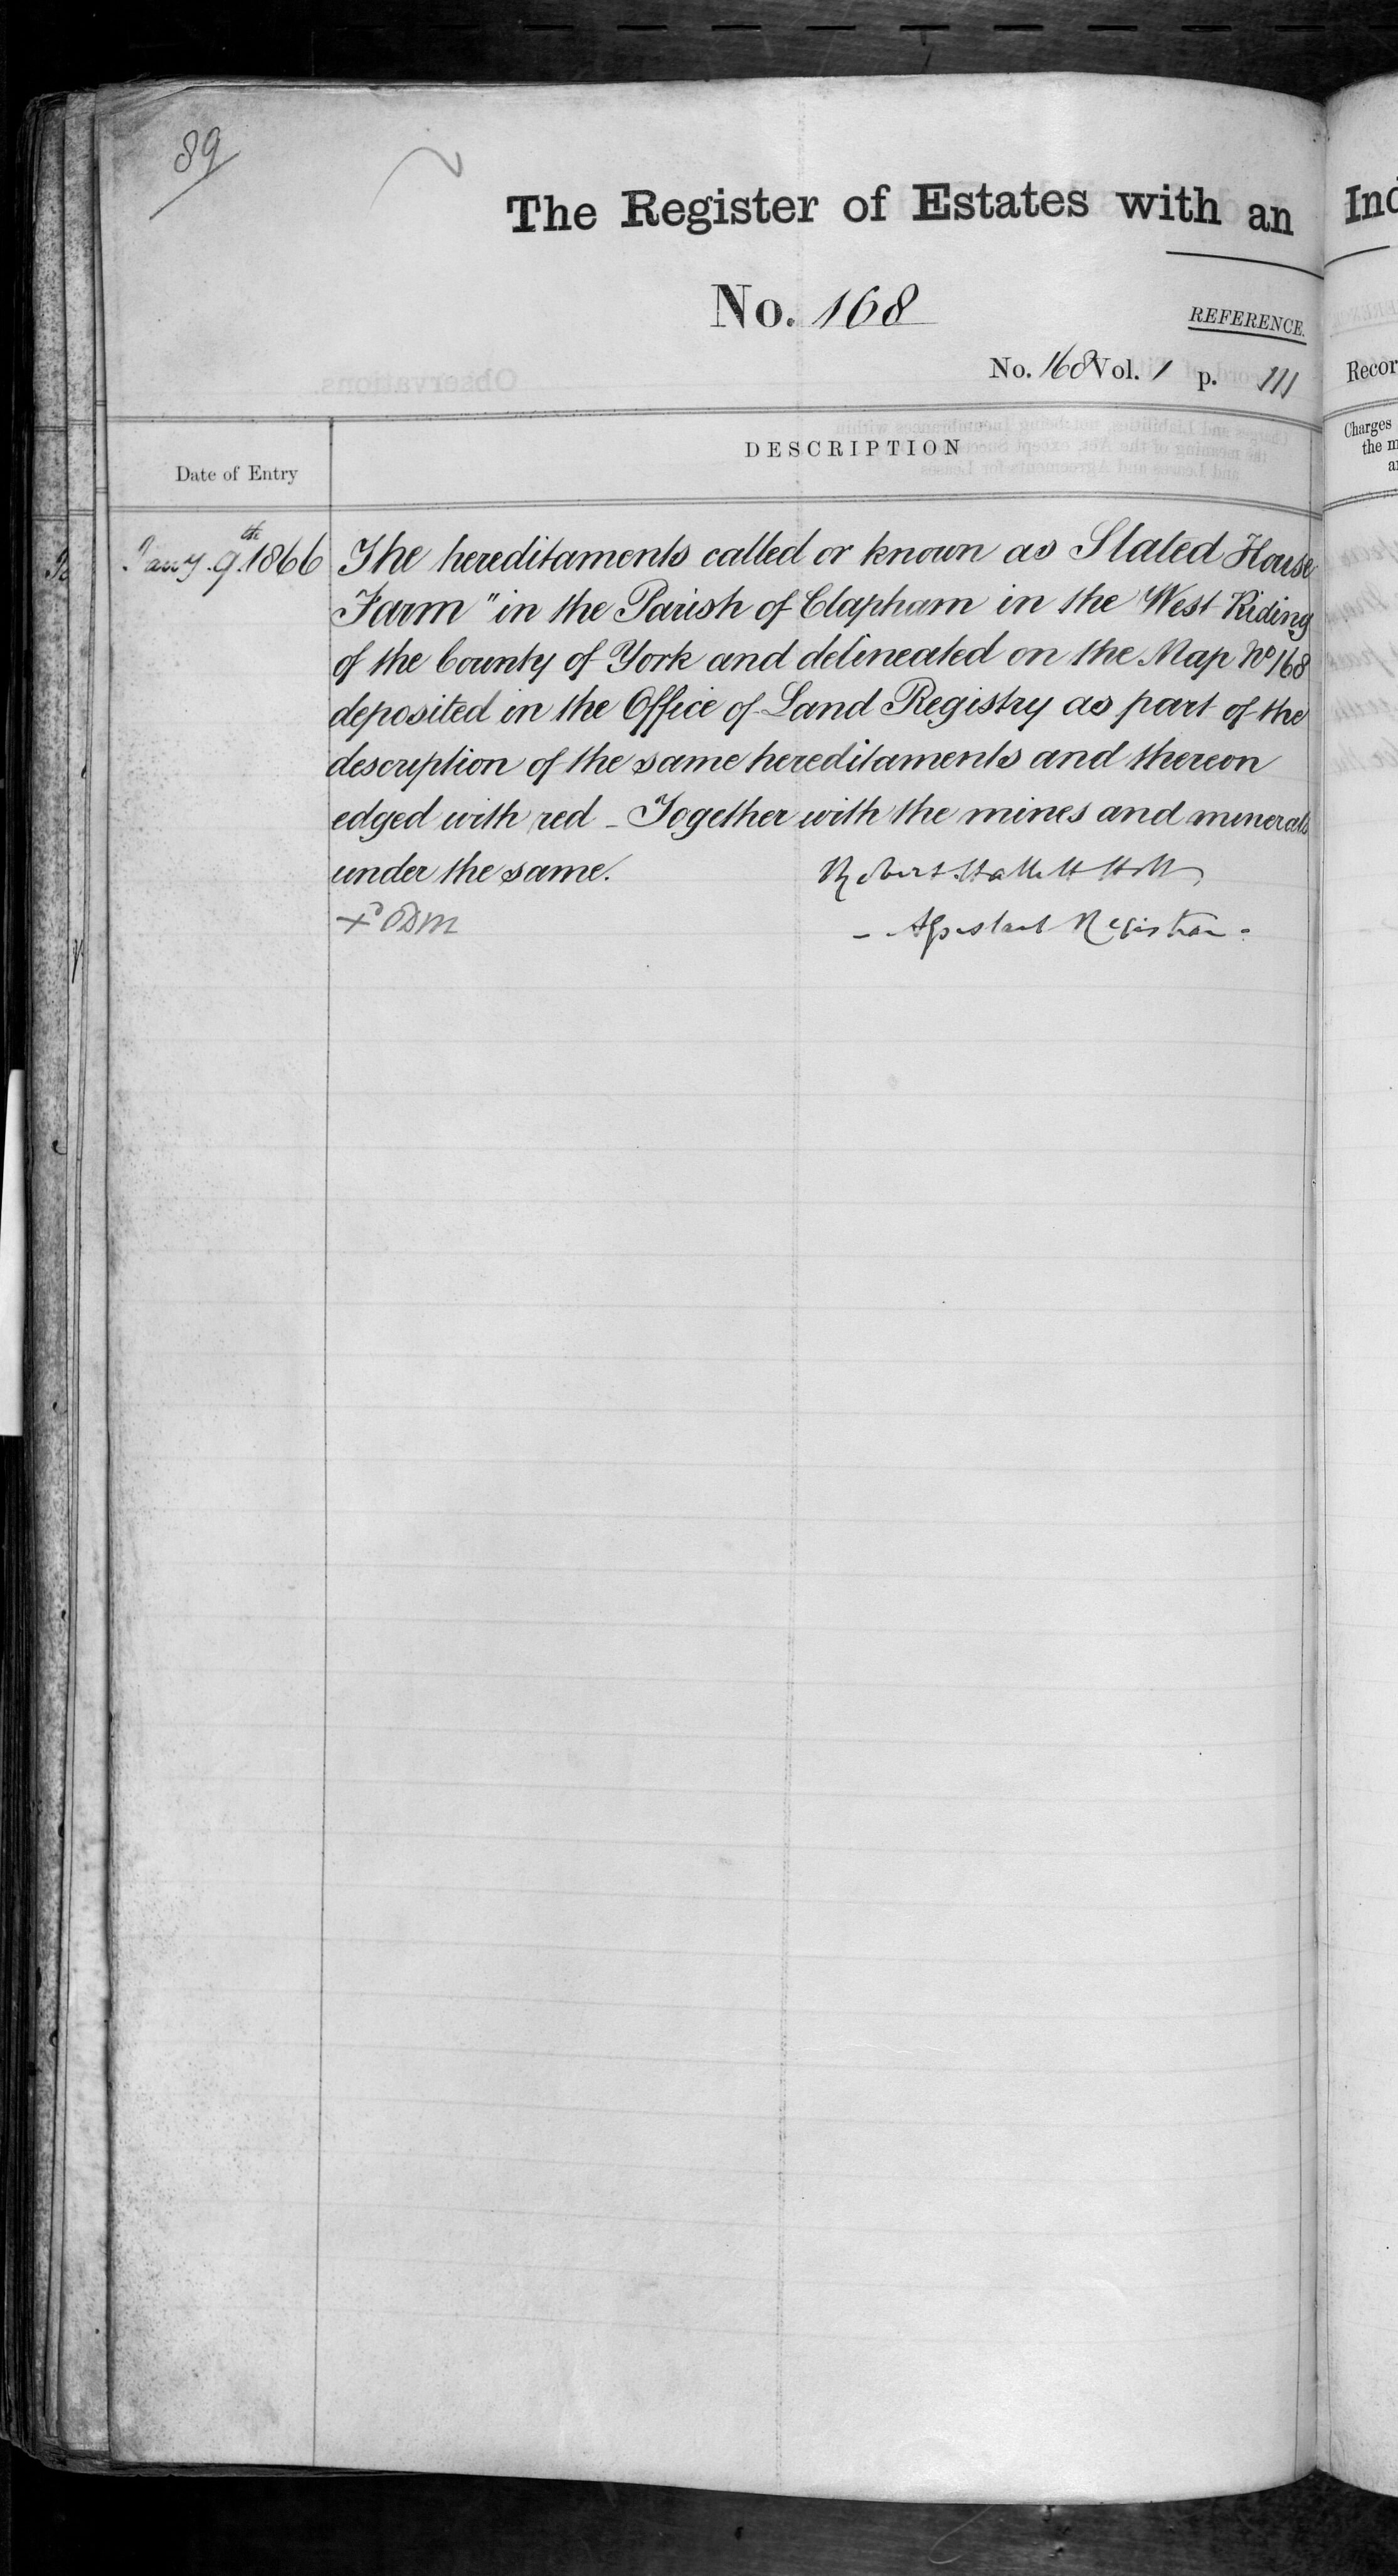 89
The Register of Estates with an
No. 168
REFERENCE.
No. 168 Vol. 1 p. 111
Date of Entry
DESCRIPTION
Jany. 9th 1866
The hereditaments called or known as Slated House
Farm" in the Parish of Clapham in the West Riding
of the County of York and delineated on the Map No 168
deposited in the Office of Land Registry as part of the
description of the same hereditaments and thereon
edged with red _ Together with the mines and minerals
under the same.
Robert Hallett Holt
- Assistant Registrar -
Ind
Recor
Charges
the m
a